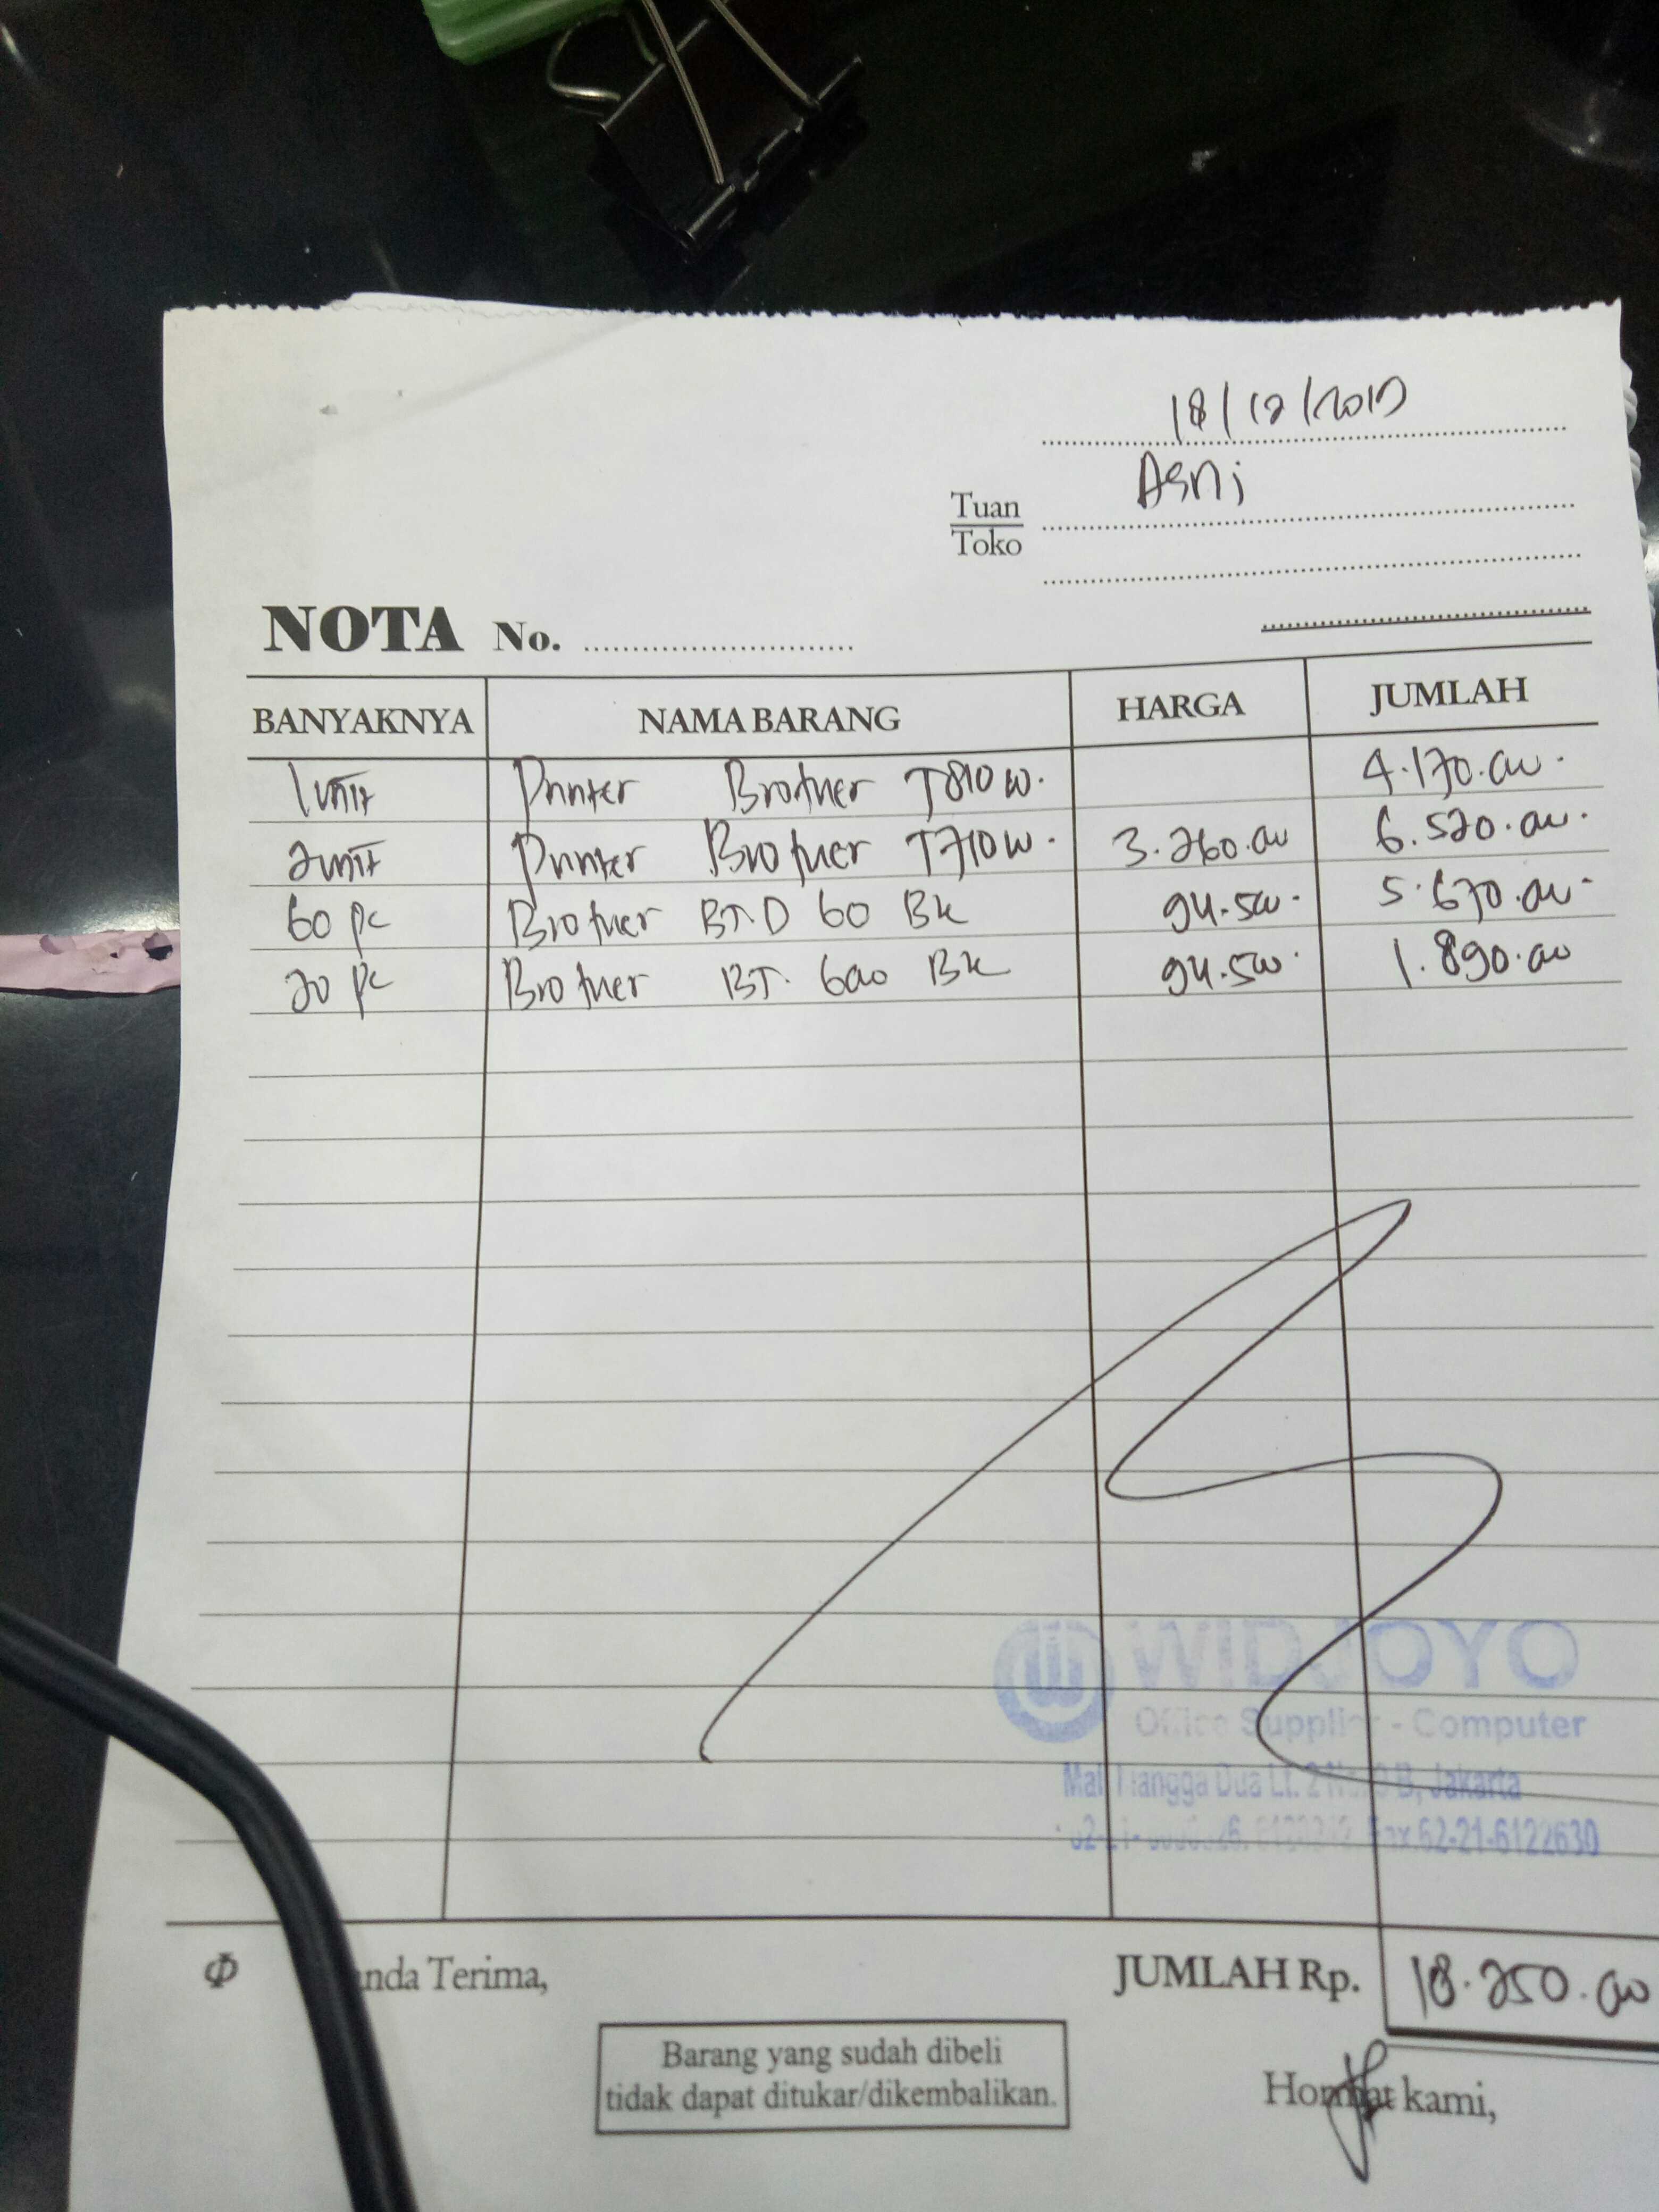 18/12/2017
Asni
Tuan
Toko
NOTA No.
BANYAKNYA NAMA BARANG HARGA JUMLAH
1 unit Printer Brother T810w. 4.170.000.
2 unit Printer Brother T710w. 3.260.000 6.520.000.
60 pc Brother BT.D 60 Bk 94.500. 5.670.000.
20 pc Brother BT. 6000 Bk 94.500. 1.890.000
WIDJOYO
Office Supplies - Computer
Mal Mangga Dua Lt. 2 B, Jakarta
Fax.62-21-6122630
Φ anda Terima, JUMLAH Rp. 18.250.000
Barang yang sudah dibeli
tidak dapat ditukar/dikembalikan.
Hormat kami,